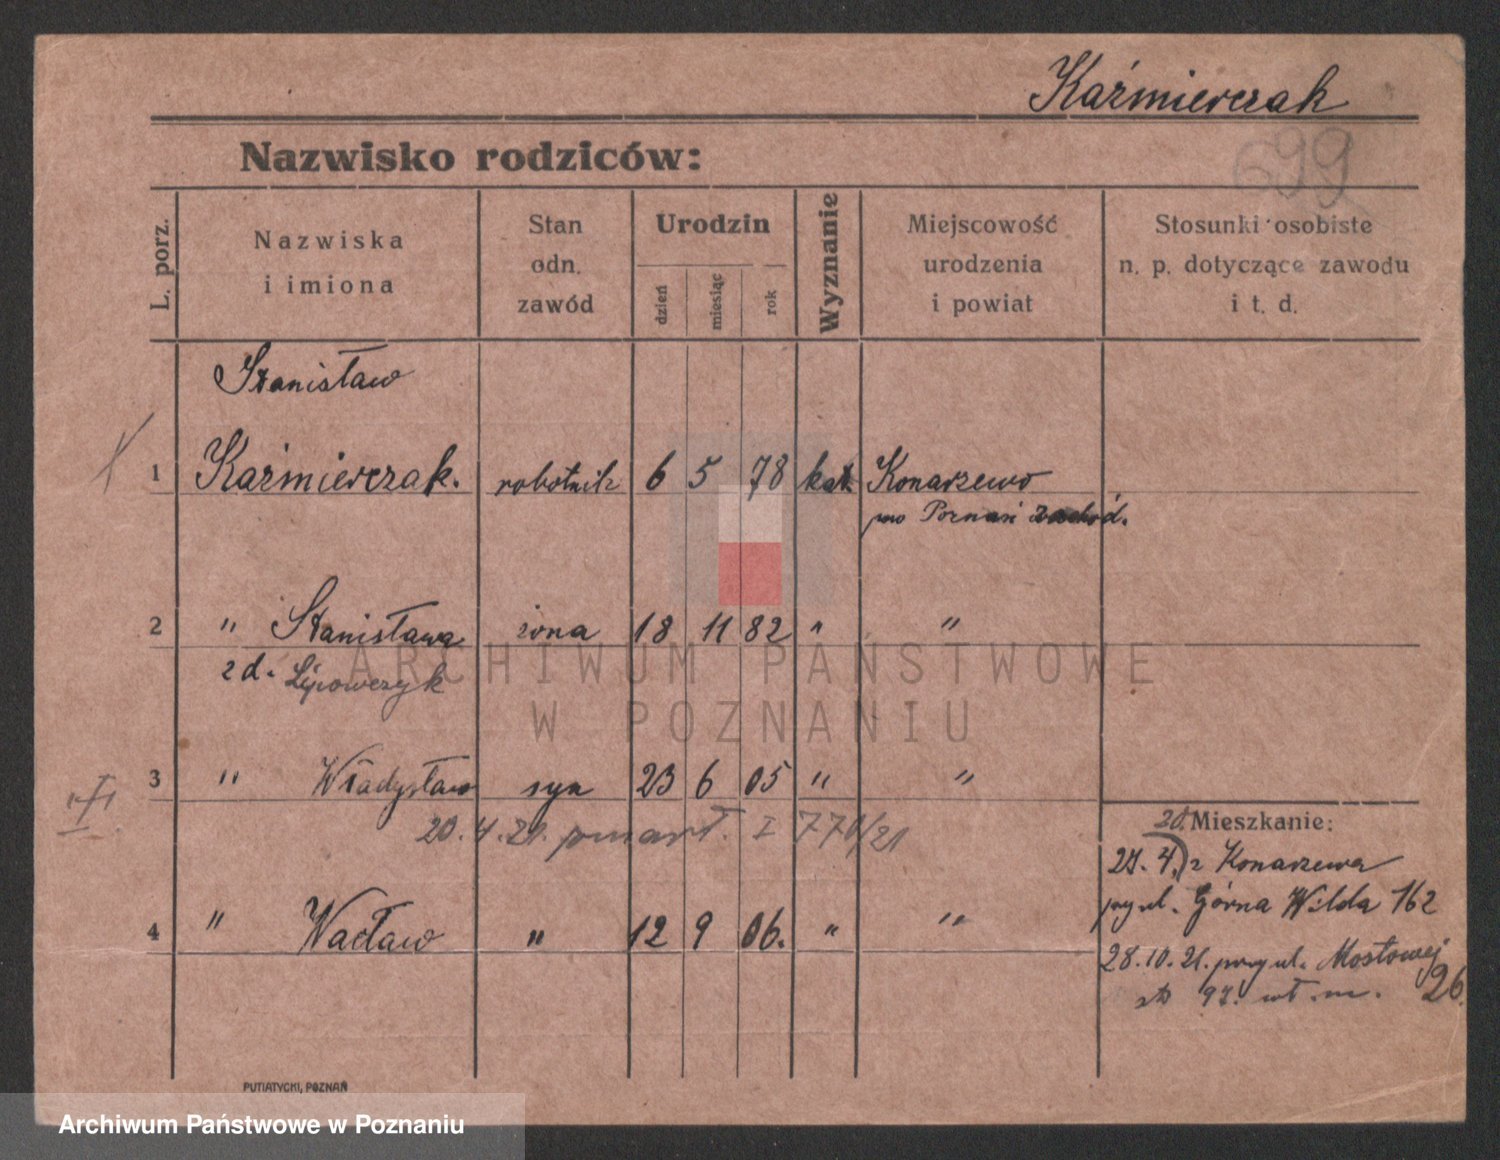 Kaźmierczak
699
Nazwisko rodziców:
L. porz.
Nazwiska
i imiona
Stan
odn.
zawód
Urodzin
dzień
miesiąc
rok
Wyznanie
Miejscowość
urodzenia
i powiat
Stosunki osobiste
n. p. dotyczące zawodu
i t. d.
Stanisław
1 Kaźmierczak. robotnik 6 5 78 kat. Konarzewo
pow Poznań zachód.
2 " Stanisława żona 18 11 82 " "
z d. Lipowczyk
3 " Władysław syn 23 6 05 " "
20.4.21. pozmarł. I 770/21
4 " Wacław " 12 9 06. " "
20. Mieszkanie:
21.4. z Konarzewa
przy ul. Górna Wilda 162
28.10.21. przy ul. Mostowej
26.
wł. m.
PUTIATYCKI, POZNAŃ
ARCHIWUM PAŃSTWOWE
W POZNANIU
Archiwum Państwowe w Poznaniu